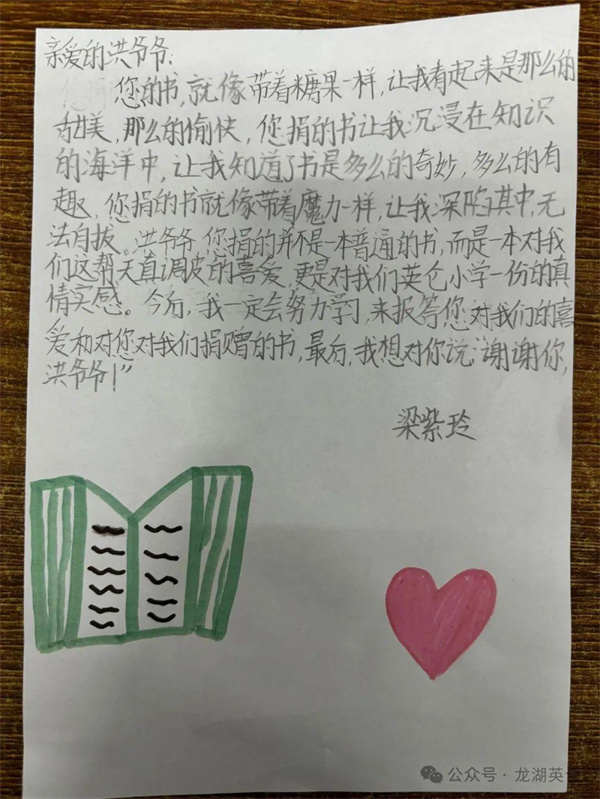 亲爱的洪爷爷：
您的书,就像带着糖果一样,让我有起来是那么的
甜美,那么的愉快,您捐的书让我沉浸在知识
的海洋中,让我知道了书是多么的奇妙,多么的有
趣,您捐的书就像带着魔力一样,让我深陷其中,无
法自拔。洪爷爷,您捐的并不是一本普通的书,而是一本对我
们这帮天真调皮的喜爱,更是对我们英仑小学一份的真
情实感。今后,我一定会努力学习,来报答您对我们的喜
爱和对您对我们捐赠的书,最后,我想对你说:谢谢你,
洪爷爷!”
梁紫玲
公众号·龙湖英